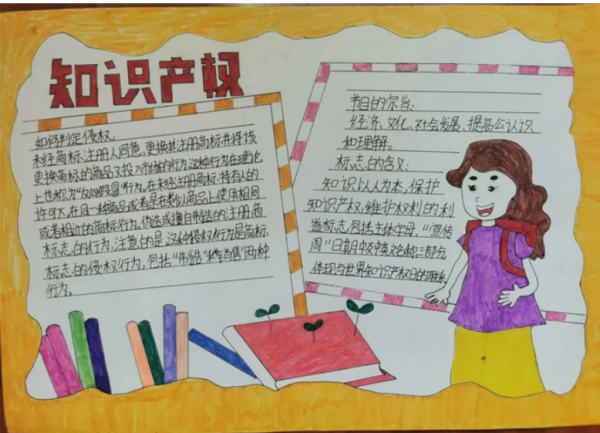 知识产权
如何判定侵权。
未经商标注册人同意,更换其注册商标并将该
更换商标的商品又投入市场的行为,这种行为在理论
上也称为“反向假冒”行为。在未经注册商标持有人的
许可下,在同一种商品或者是在类似商品上使用相同
或者相近的商标行为。伪造或擅自制造的注册商
标标志的行为。注意的是这种侵权行为是商标
标志的侵权行为,包括“制造”“销售”两种
行为。
节日的宗旨:
经济、文化、社会发展、提高公认识
和理解。
标志的含义:
知识以人为本,保护
知识产权,维护权利的利
益标志,包括主体字母、“宣传
周”日期中及中英文名称三部分
体现与世界知识产权日的联系